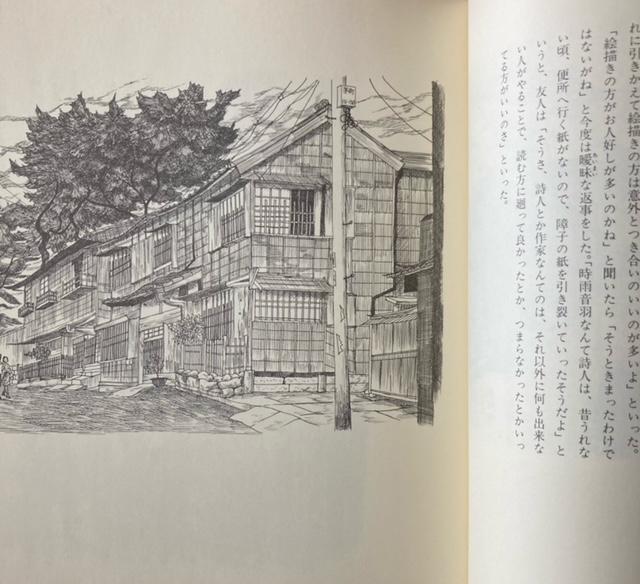 れに引きかえて絵描きの方は意外とつき合いのいいのが多いよ」といった。
「絵描きの方がお人好しが多いのかね」と聞いたら「そうときまったわけで
はないがね」と今度は曖昧な返事をした。「時雨音羽なんて詩人は、昔うれな
い頃、便所へ行く紙がないので、障子の紙を引き裂いていったそうだよ」と
いうと、友人は「そうさ、詩人とか作家なんてのは、それ以外に何も出来な
い人がやることで、読む方に廻って良かったとか、つまらなかったとかいっ
てる方がいいのさ」といった。